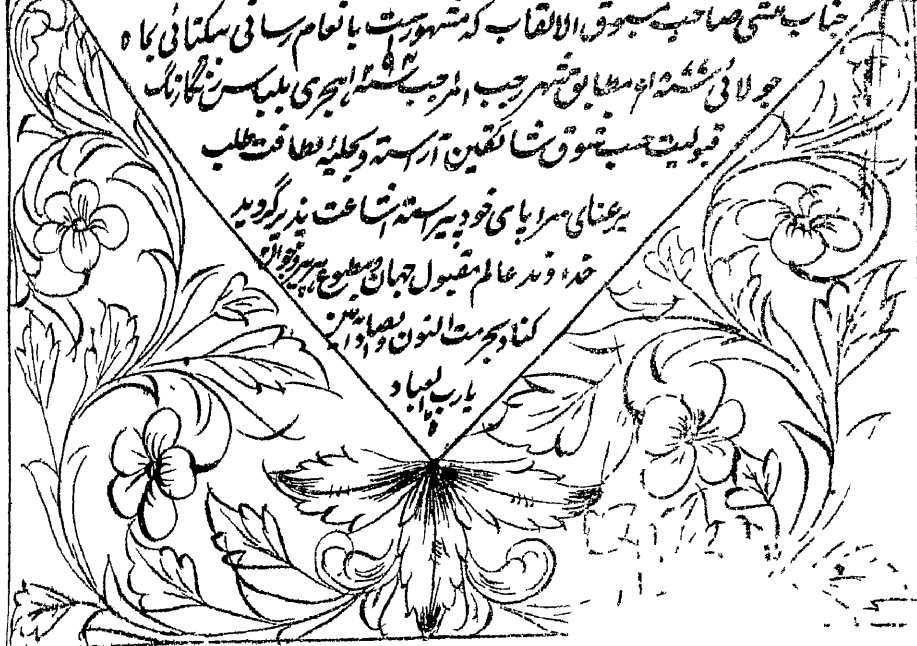 جناب منشی صاحب مسبوق الالقاب که مشهورست بانعام رسانی یکتائی بماه
جولائی مطابق شهر رجب المرجب هجری بلباس رنگارنگ
قبولیت شوق شائقین آراسته و بحلیهٔ لطافت طلب
برعنای سراپای خود پیراسته اشاعت پذیر گردید
خداوند عالم مقبول جهان و مطبوع
کناد بحرمت النون والصاد آمین
یارب العباد